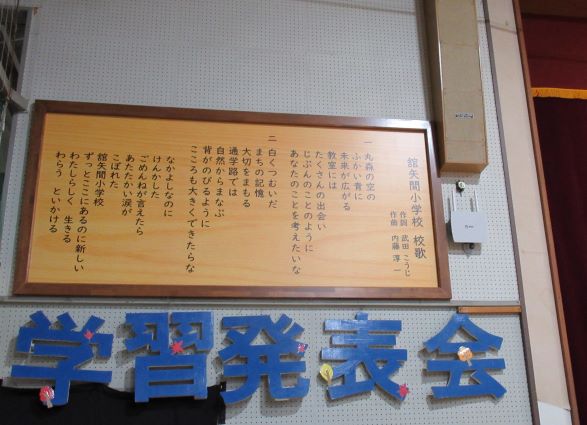 舘矢間小学校 校歌
作詞 武田 こうじ
作曲 内藤 淳一
一 丸森の空の
ふかい青に
未来が広がる
教室には
たくさんの出会い
じぶんのことのように
あなたのことを考えたいな
二 白くつむいだ
まちの記憶
大切をまもる
通学路では
自然からまなぶ
背がのびるように
こころも大きくできたらな
なかよしなのに
けんかした
ごめんねが言えたら
あたたかい涙が
こぼれた
舘矢間小学校
ずっとここにあるのに新しい
わたしらしく 生きる
わらう といかける
学習発表会